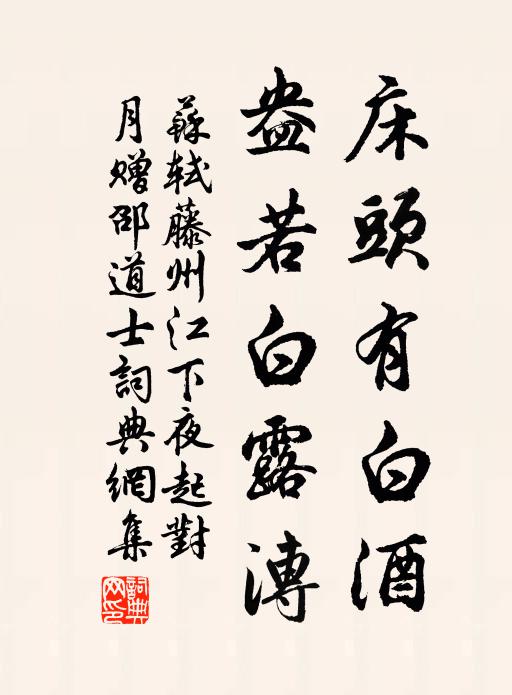 床頭有白酒
盎若白露漙
蘇軾藤州江下夜起對
月贈邵道士詞典網集
詞典网印